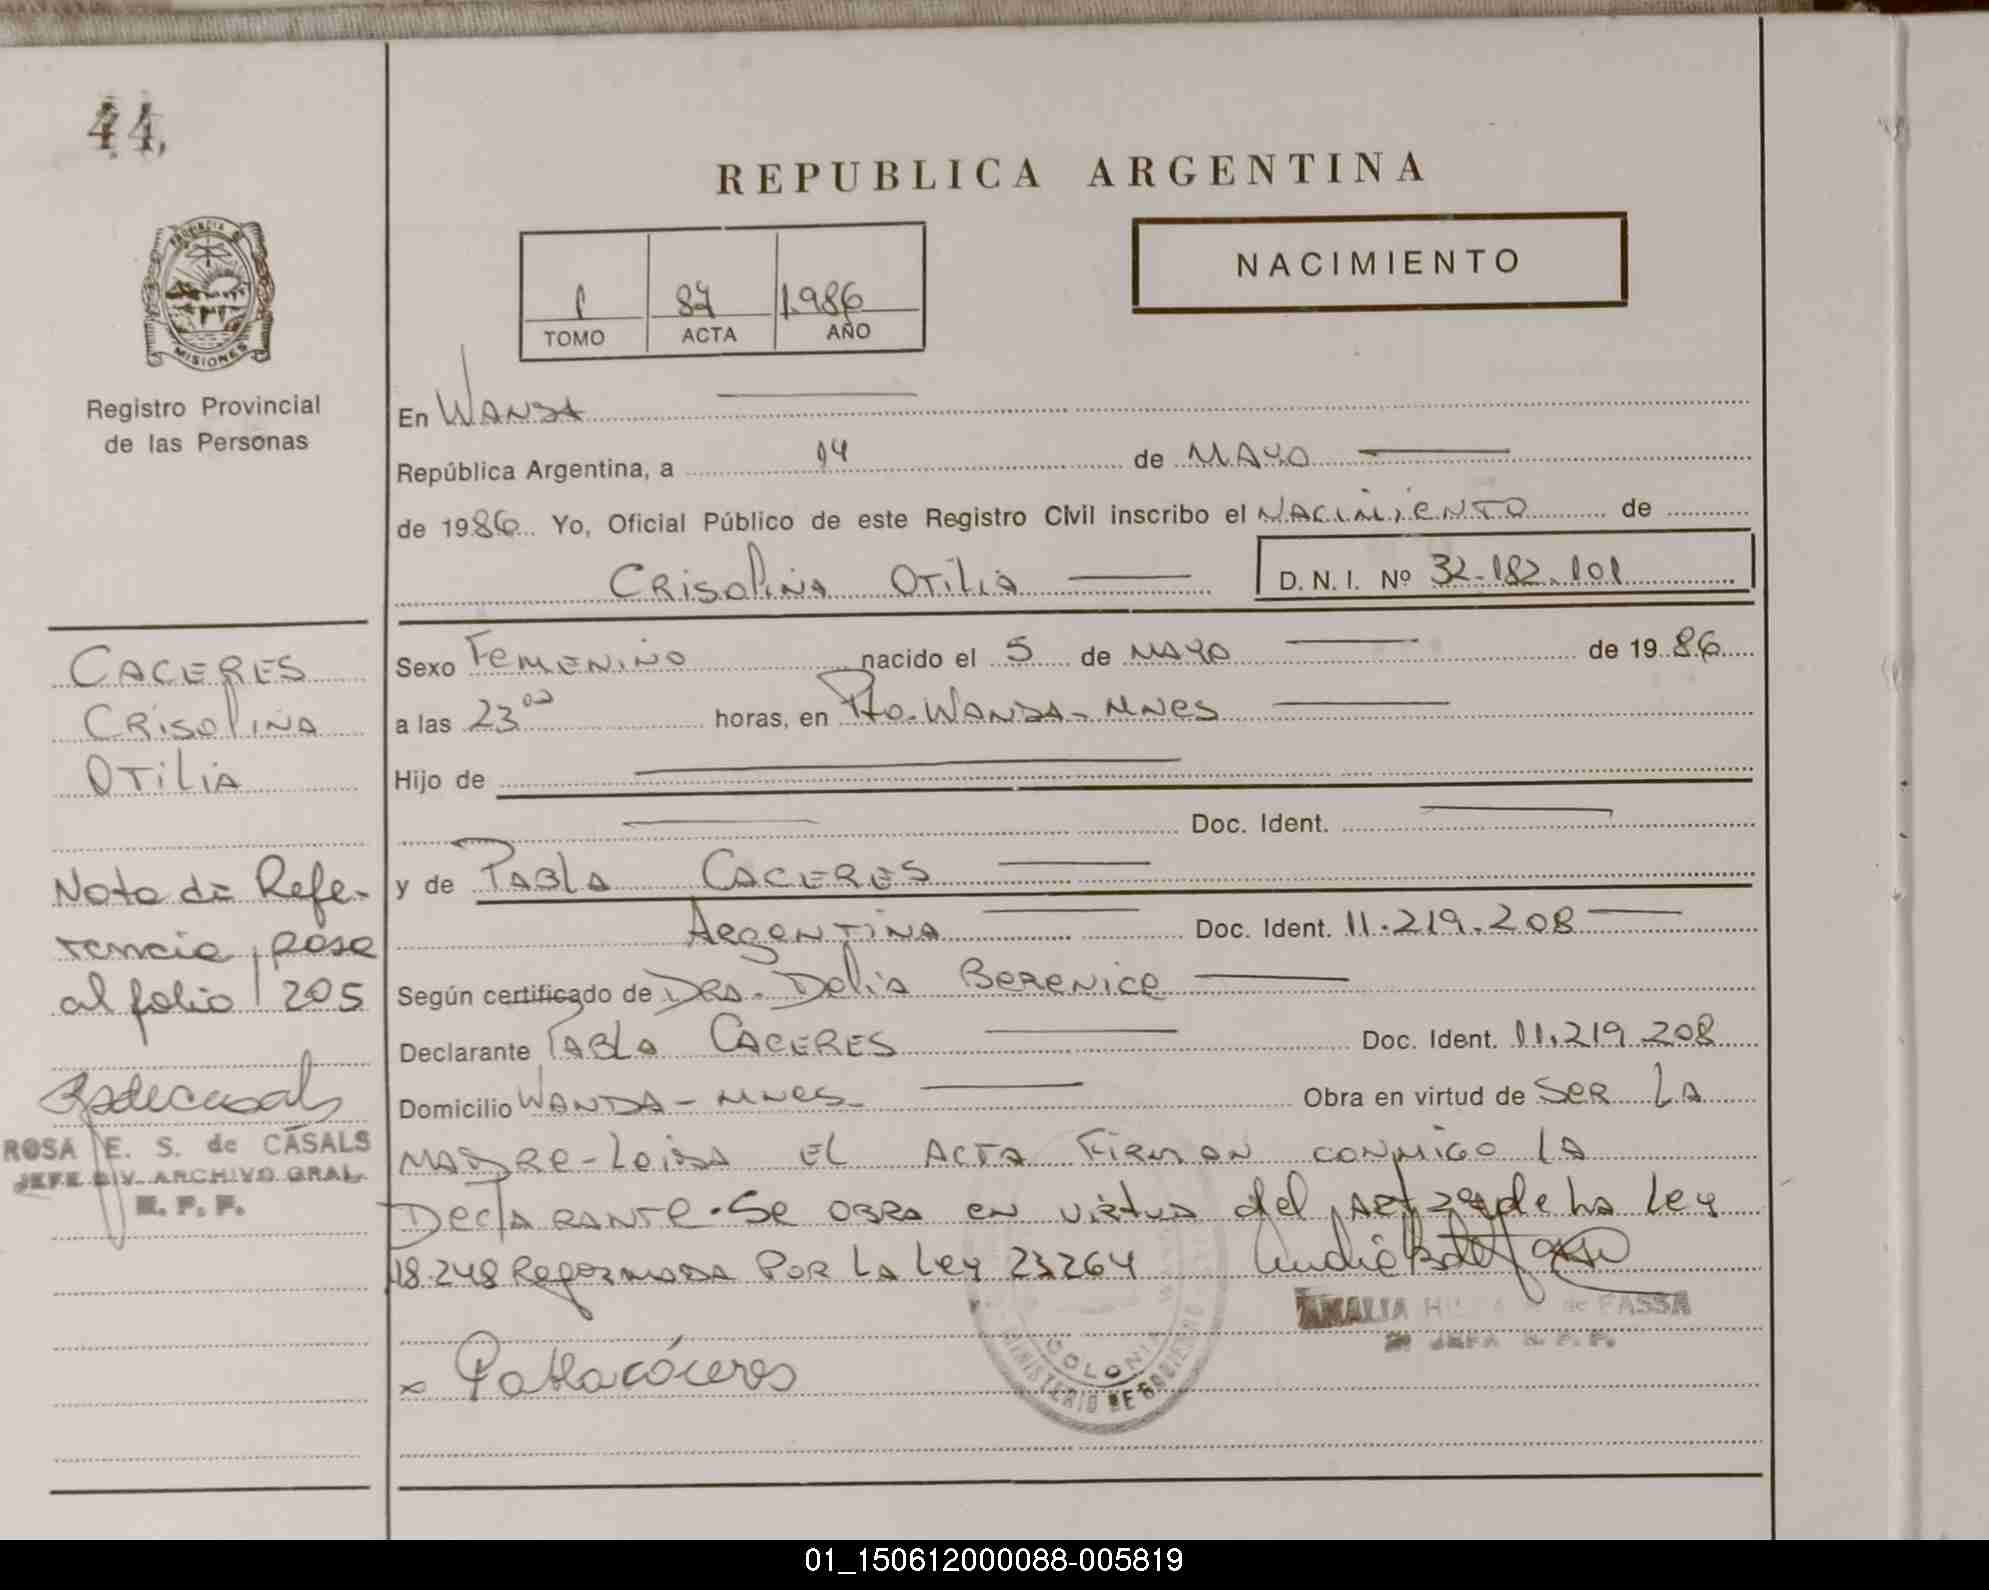 44
REPUBLICA ARGENTINA
NACIMIENTO
1 87 1986
TOMO ACTA AÑO
PROVINCIA DE
MISIONES
Registro Provincial
de las Personas
En Wanda
República Argentina, a 14 de Mayo
de 1986 Yo, Oficial Público de este Registro Civil inscribo el Nacimiento de
Crisolina Otilia D.N.I. Nº 32.182.101
Sexo Femenino nacido el 5 de Mayo de 1986
a las 23⁰⁰ horas, en Pto. Wanda - Mnes
Hijo de
Doc. Ident.
y de Pabla Caceres
Argentina Doc. Ident. 11.219.208
Según certificado de Dra. Delia Berenice
Declarante Pabla Caceres Doc. Ident. 11.219.208
Domicilio Wanda - Mnes - Obra en virtud de Ser La
Madre - Leida el Acta Firman conmigo la
Declarante. Se obra en virtud del Art de La Ley
18.248 Reformada Por La Ley 23264
AMALIA de FASSA
JEFA R. P. P.
x Pabla cáceres
COLONIA
MINISTERIO DE GOBIERNO
CACERES
Crisolina
Otilia
Nota de Refe-
rencia, pasa
al folio 205
ROSA E. S. de CASALS
JEFE DIV. ARCHIVO GRAL.
R. P. P.
01_150612000088-005819